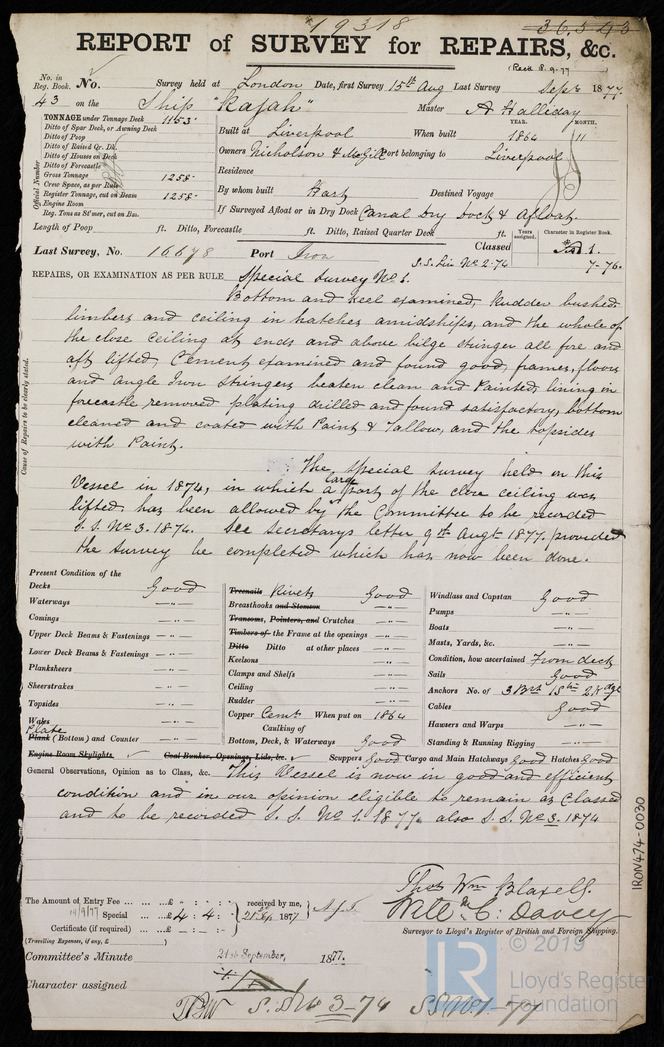 19318
36,543
REPORT of SURVEY for REPAIRS, &c.
(Recd 8.9.77)
No. in Reg. Book. No. Survey held at London Date, first Survey 15th Aug Last Survey Sept 6 1877
43 on the Ship "Rajah" Master A Halliday
TONNAGE under Tonnage Deck 1153
Ditto of Spar Deck, or Awning Deck
Ditto of Poop
Ditto of Raised Qr. Dk.
Ditto of Houses on Deck
Ditto of Forecastle
Gross Tonnage 1258
Crew Space, as per Rule
Register Tonnage, cut on Beam 1258
Engine Room
Reg. Tons as St'mer, cut on Bm.
Official Number
YEAR. MONTH.
Built at Liverpool When built 1864 11
Owners Nicholson & McGill Port belonging to Liverpool
Residence
By whom built Hart Destined Voyage
If Surveyed Afloat or in Dry Dock Canal Dry Dock & Afloat.
Length of Poop ft. Ditto, Forecastle ft. Ditto, Raised Quarter Deck ft.
Years assigned. Character in Register Book.
Last Survey, No. 16678 Port Iron Classed A 1.
S.S. Liv No 2-74 7-76.
REPAIRS, OR EXAMINATION AS PER RULE Special Survey No 1.
Cause of Repairs to be clearly stated.
Bottom and keel examined, Rudder bushed
limbers and ceiling in hatches amidships, and the whole of
the close ceiling at ends and above bilge stringer all fore and
aft lifted, Cement examined and found good, frames, floors
and angle Iron Stringers beaten clean and Painted, lining in
forecastle removed plating drilled and found satisfactory, bottom
cleaned and coated with Paint & Tallow, and the topsides
with Paint.
The special survey held on this
Vessel in 1874, in which a large part of the close ceiling was
lifted has been allowed by the Committee to be recorded
S. S. No 3. 1874. See Secretarys letter 9th Augt 1877. provided
the Survey be completed which has now been done.
Present Condition of the
Decks Good
Waterways — " —
Comings — " —
Upper Deck Beams & Fastenings — " —
Lower Deck Beams & Fastenings — " —
Planksheers — " —
Sheerstrakes — " —
Topsides — " —
Wales — " —
Plate
Plank (Bottom) and Counter — " —
Engine Room Skylights
Treenails Rivets Good
Breasthooks and Stemson — " —
Transoms, Pointers, and Crutches — " —
Timbers of the Frame at the openings — " —
Ditto Ditto at other places — " —
Keelsons — " —
Clamps and Shelfs — " —
Ceiling — " —
Rudder — " —
Copper Cemt When put on 1864
Caulking of
Bottom, Deck, & Waterways Good
Coal Bunker, Openings, Lids, &c.
Windlass and Capstan Good
Pumps — " —
Boats — " —
Masts, Yards, &c. — " —
Condition, how ascertained From deck
Sails Good
Anchors No. of 3 Brs 1 Stm 2 Kdge
Cables Good
Hawsers and Warps — " —
Standing & Running Rigging — " —
Scuppers Good Cargo and Main Hatchways Good Hatches Good
General Observations, Opinion as to Class, &c. This Vessel is now in good and efficient
condition and in our opinion eligible to remain as Classed
and to be recorded S. S. No 1. 1877. also S. S. No 3. 1874
IRON474-0030
The Amount of Entry Fee £ : :
14/9/77 Special £4 : 4 :
Certificate (if required) £ : :
(Travelling Expenses, if any, £ )
received by me,
21 Sep. 1877
Thos Wm Blaxell.
Surveyor to Lloyd's Register of British and Foreign Shipping.
Committee's Minute 21st September, 1877.
Character assigned
S. S. No 3-74 SS No 1-77
LR
© 2019
Lloyd's Register
Foundation